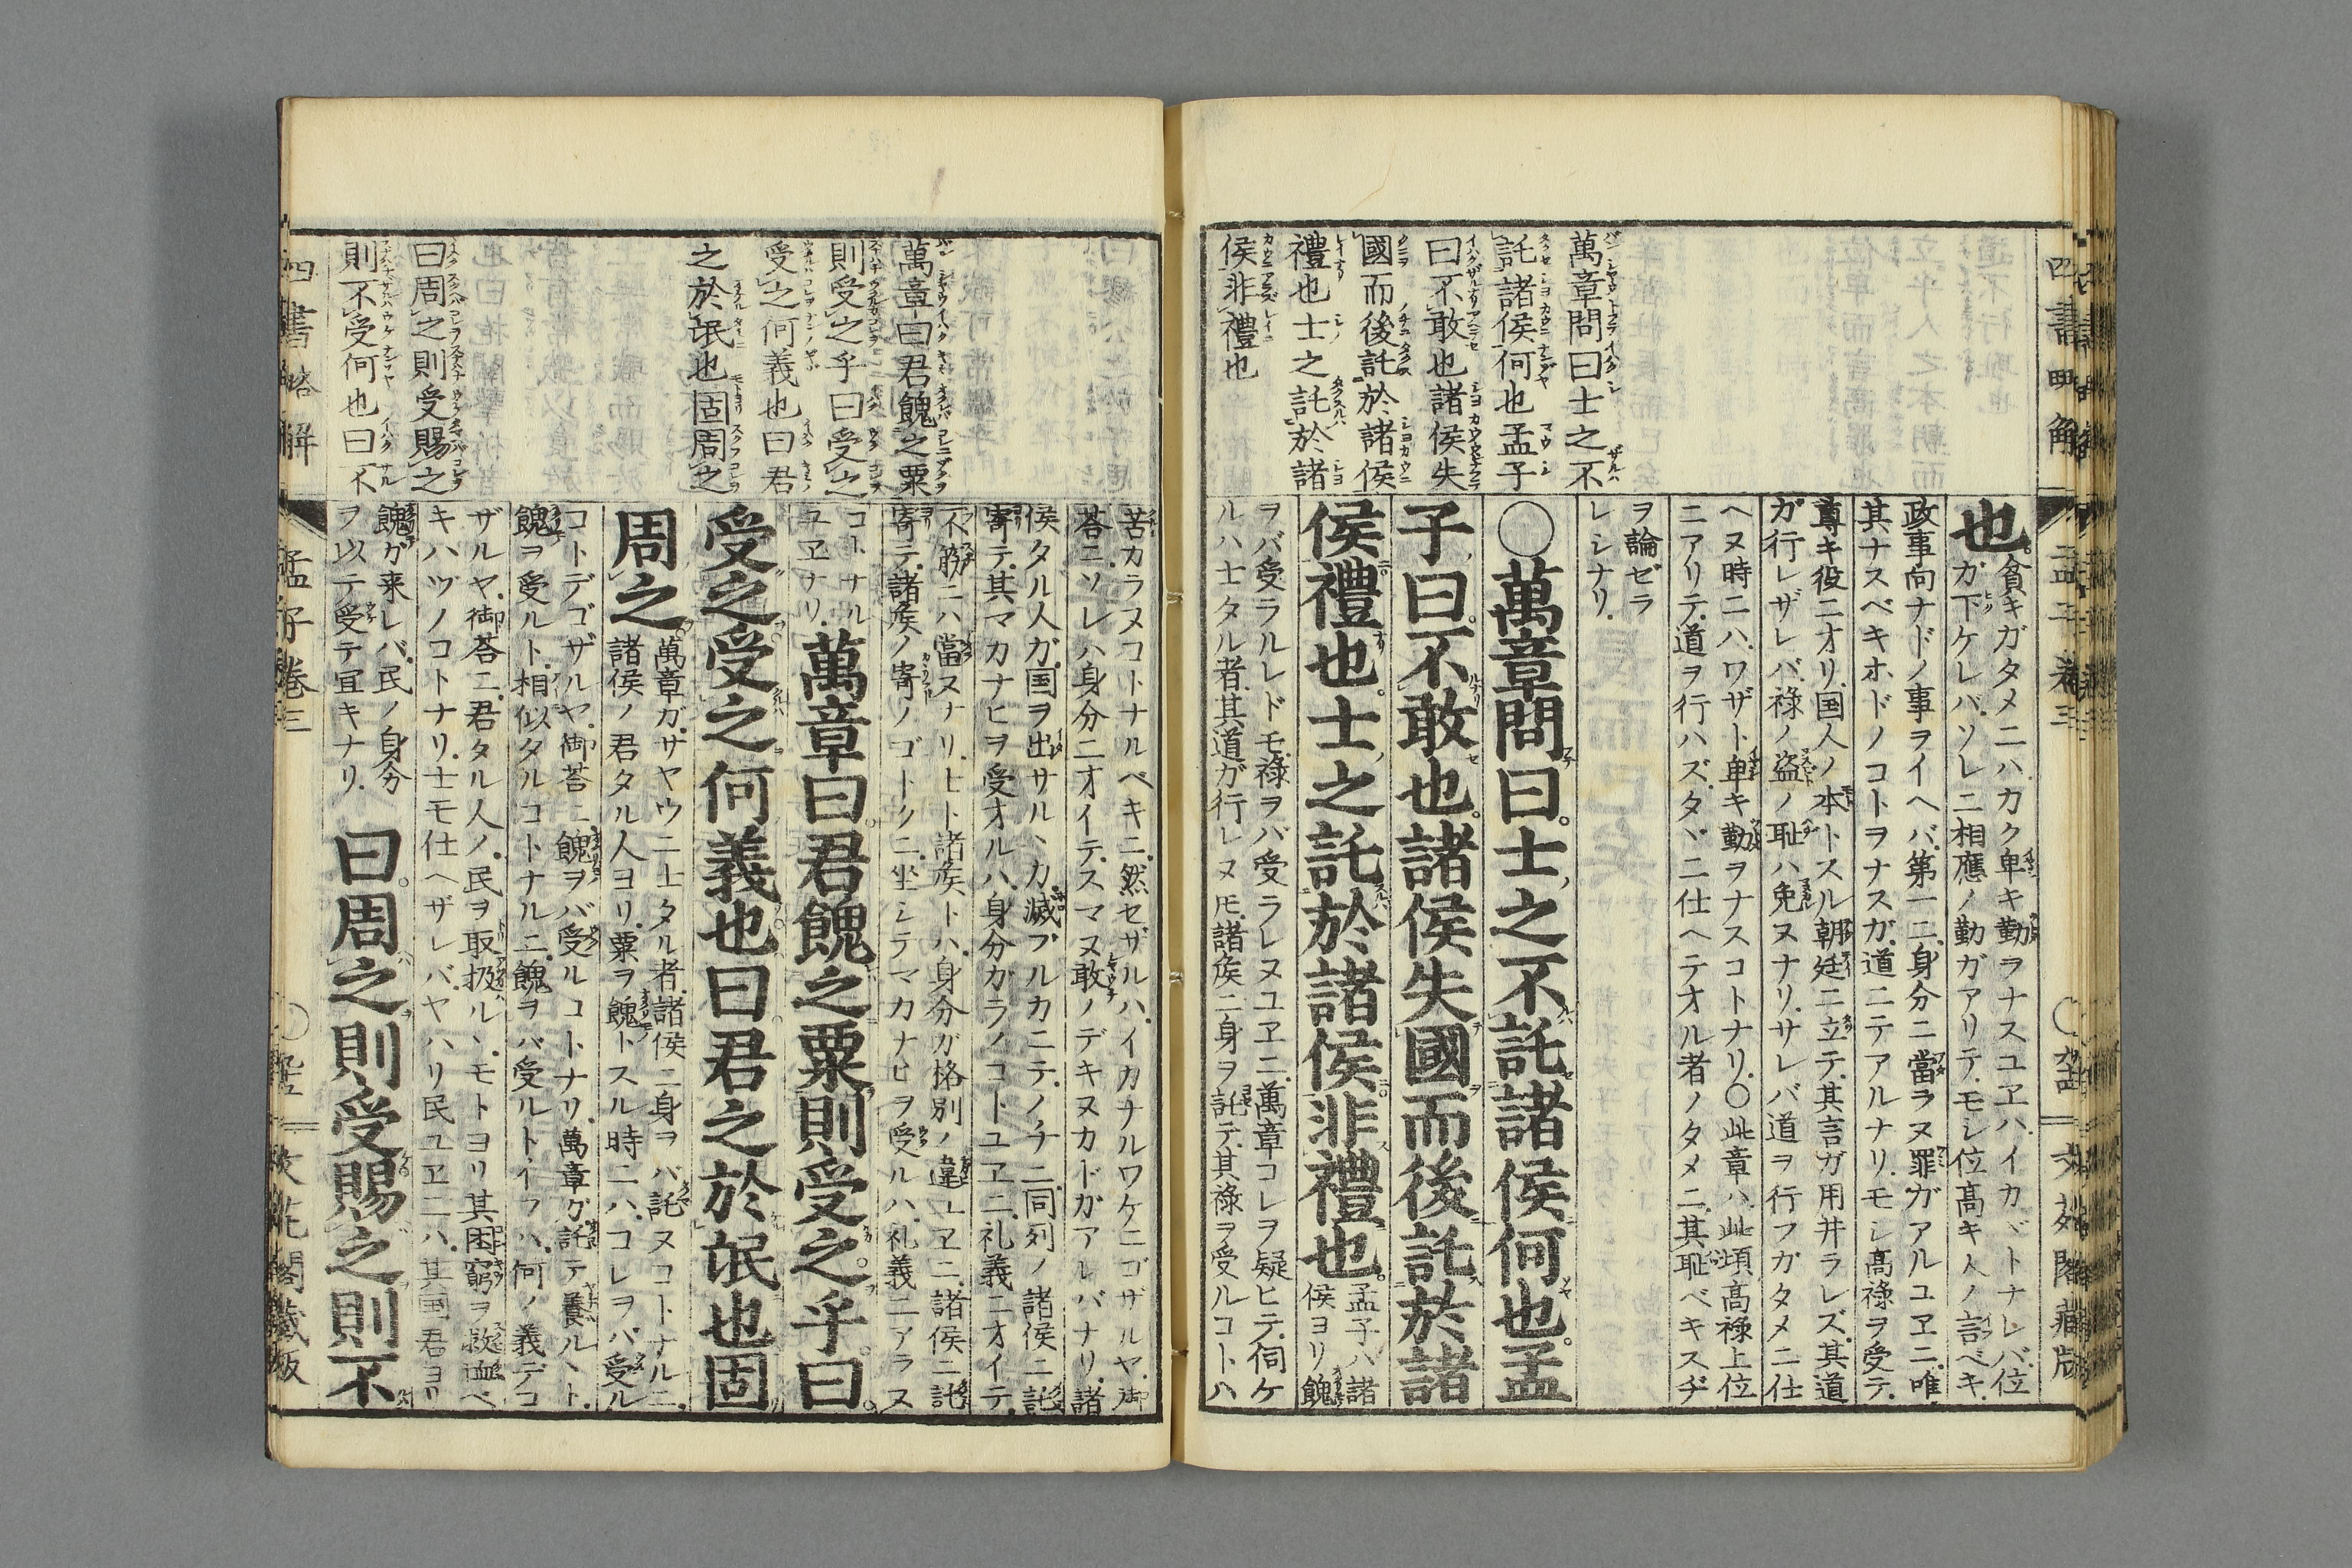 萬章問曰士之不
託諸侯何也孟子
曰不敢也諸侯失
國而後託於諸侯
禮也士之託於諸
侯非禮也
也
貧キガタメニハカク卑キ勤ヲナスユヱハイカヾトナレバ位
ガ下ケレバソレニ相應ノ勤ガアリテモシ位高キ人ノ言ベキ
政事向ナドノ事ヲイヘバ第一ニ身分ニ當ラヌ罪ガアルユヱニ唯
其ナスベキホドノコトヲナスガ道ニテアルナリモシ高祿ヲ受テ
尊キ役ニオリ国人ノ本トスル朝廷ニ立テ其言ガ用井ラレズ其道
ガ行レザレバ祿ノ盗ノ恥ハ免ヌナリサレバ道ヲ行フガタメニ仕
ヘヌ時ニハワザト卑キ勤ヲナスコトナリ○此章ハ此頃高祿上位
ニアリテ道ヲ行ハズタヾニ仕ヘテオル者ノタメニ其恥ベキスヂ
ヲ論ゼラ
レシナリ
○萬章問曰士之不託諸侯何也孟
子曰不敢也諸侯失國而後託於諸
侯禮也士之託於諸侯非禮也
孟子ハ諸
侯ヨリ餽
ヲバ受ラルレドモ祿ヲバ受ラレヌユヱニ萬章コレヲ疑ヒテ伺ケ
ルハ士タル者其道ガ行レヌモ諸侯ニ身ヲ託テ其祿ヲ受ルコトハ
四書略解
孟子卷三
萬章曰君餽之粟
則受之乎曰受之
受之何義也曰君
之於氓也固周之
曰周之則受賜之
則不受何也曰不
苦カラヌコトナルベキニ然セザルハイカナルワケニゴザルヤ御
荅ニソレハ身分ニオイテスマヌ敢ノデキヌカドガアレバナリ諸
侯タル人ガ国ヲ出サルヽカ滅ブルカニテノチニ同列ノ諸侯ニ託
寄テ其マカナヒヲ受オルハ身分ガラノコトユヱニ礼義ニオイテ
不筋ニハ當ヌナリヒト諸侯トハ身分ガ格別ノ違ユヱニ諸侯ニ託
寄テ諸侯ノ寄ノゴトクニ坐シテマカナヒヲ受ルハ礼義ニアラヌ
コトナル
ユヱナリ
萬章曰君餽之粟則受之乎曰
受之受之何義也曰君之於氓也固
周之
萬章ガサヤウニ士タル者諸侯ニ身ヲバ託ヌコトナルニ
諸侯ノ君タル人ヨリ粟ヲ餽トスル時ニハコレヲバ受ル
コトデゴザルヤ御荅ニ餽ヲバ受ルコトナリ萬章ガ託テ養ルヽト
餽ヲ受ルト相似タルコトナルニ餽ヲバ受ルトイフハ何ノ義デゴ
ザルヤ御荅ニ君タル人ノ民ヲ取扱ルヽモトヨリ其困窮ヲ救血ベ
キハヅノコトナリ士モ仕ヘザレバヤハリ民ユヱニハ其国君ヨリ
餽ガ来レバ民ノ身分
ヲ以テ受テ宜キナリ
曰周之則受賜之則不
四書略解
孟子卷三
文花閣藏板